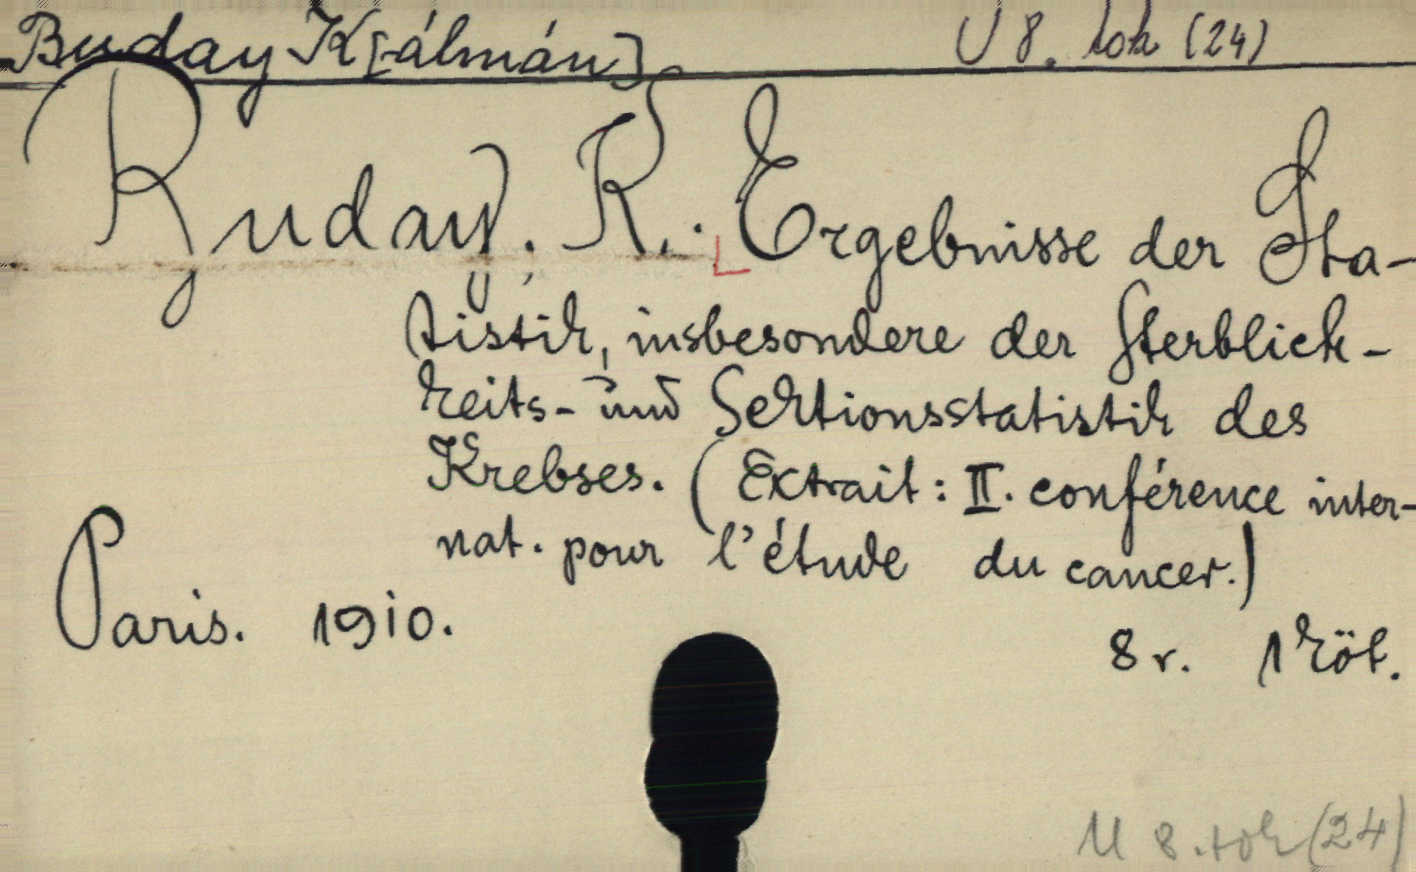 Buday K[álmán] U 8. tok (24)
Buday, K.: Ergebnisse der Sta-
tistik, insbesondere der Sterblich-
keits- und Sektionsstatistik des
Krebses. (Extrait: II. conférence inter-
nat. pour l'étude du cancer.)
Paris. 1910.
8 r. 1 köt.
U 8. tok (24)